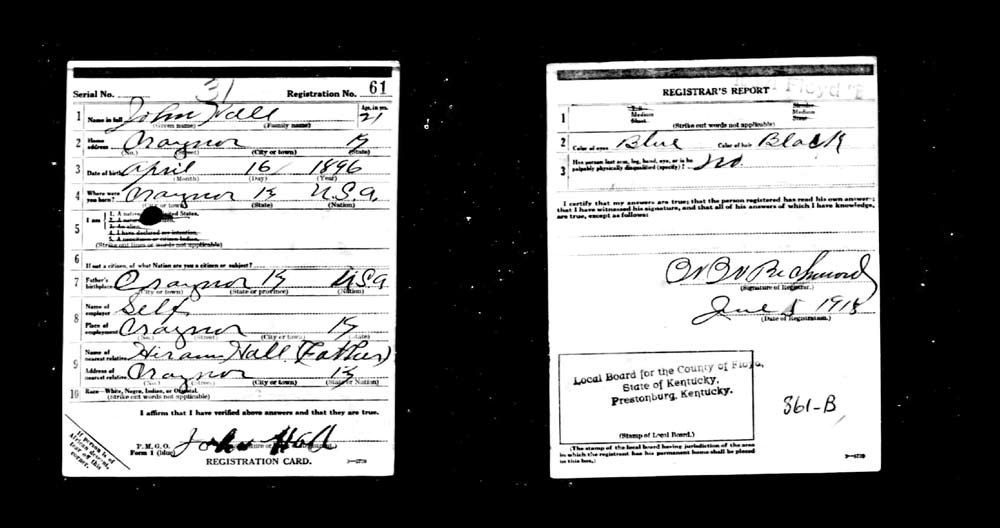 Serial No. 31 Registration No. 61
1 Name in full John Hall Age, in yrs. 21
(Given name) (Family name)
2 Home address Craynor Ky
(No.) (Street) (City or town) (State)
3 Date of birth April 16 1896
(Month) (Day) (Year)
4 Where were you born? Craynor Ky U.S.A.
(City or town) (State) (Nation)
5 I am
1. A native United States.
2. A
3. An alien.
4. I have declared my intention.
5. A noncitizen or citizen Indian.
(Strike out lines or words not applicable)
6 If not a citizen, of what Nation are you a citizen or subject?
7 Father's birthplace Craynor Ky U.S.A
(City or town) (State or province) (Nation)
8 Name of employer Self
Place of employment Craynor Ky
(No.) (Street) (City or town) (State)
9 Name of nearest relative Hiram Hall (Father)
Address of nearest relative Craynor Ky
(No.) (Street) (City or town) (State or Nation)
10 Race—White, Negro, Indian, or Oriental.
(Strike out words not applicable)
I affirm that I have verified above answers and that they are true.
P. M. G. O.
Form 1 (blue) John Hall
REGISTRATION CARD.
If person is of
African descent,
tear off this
corner.
Floyd
REGISTRAR'S REPORT
1 Medium Medium
Short Stout
(Strike out words not applicable)
2 Color of eyes Blue Color of hair Black
3 Has person lost arm, leg, hand, eye, or is he
palpably physically disqualified (specify)? No.
I certify that my answers are true; that the person registered has read his own answers;
that I have witnessed his signature, and that all of his answers of which I have knowledge,
are true, except as follows:
(Signature of Registrar.)
June 5 1918
(Date of Registration.)
Local Board for the County of Floyd,
State of Kentucky,
Prestonburg, Kentucky.
(Stamp of Local Board.)
861-B
(The stamp of the local board having jurisdiction of the area
in which the registrant has his permanent home shall be placed
in this box.)